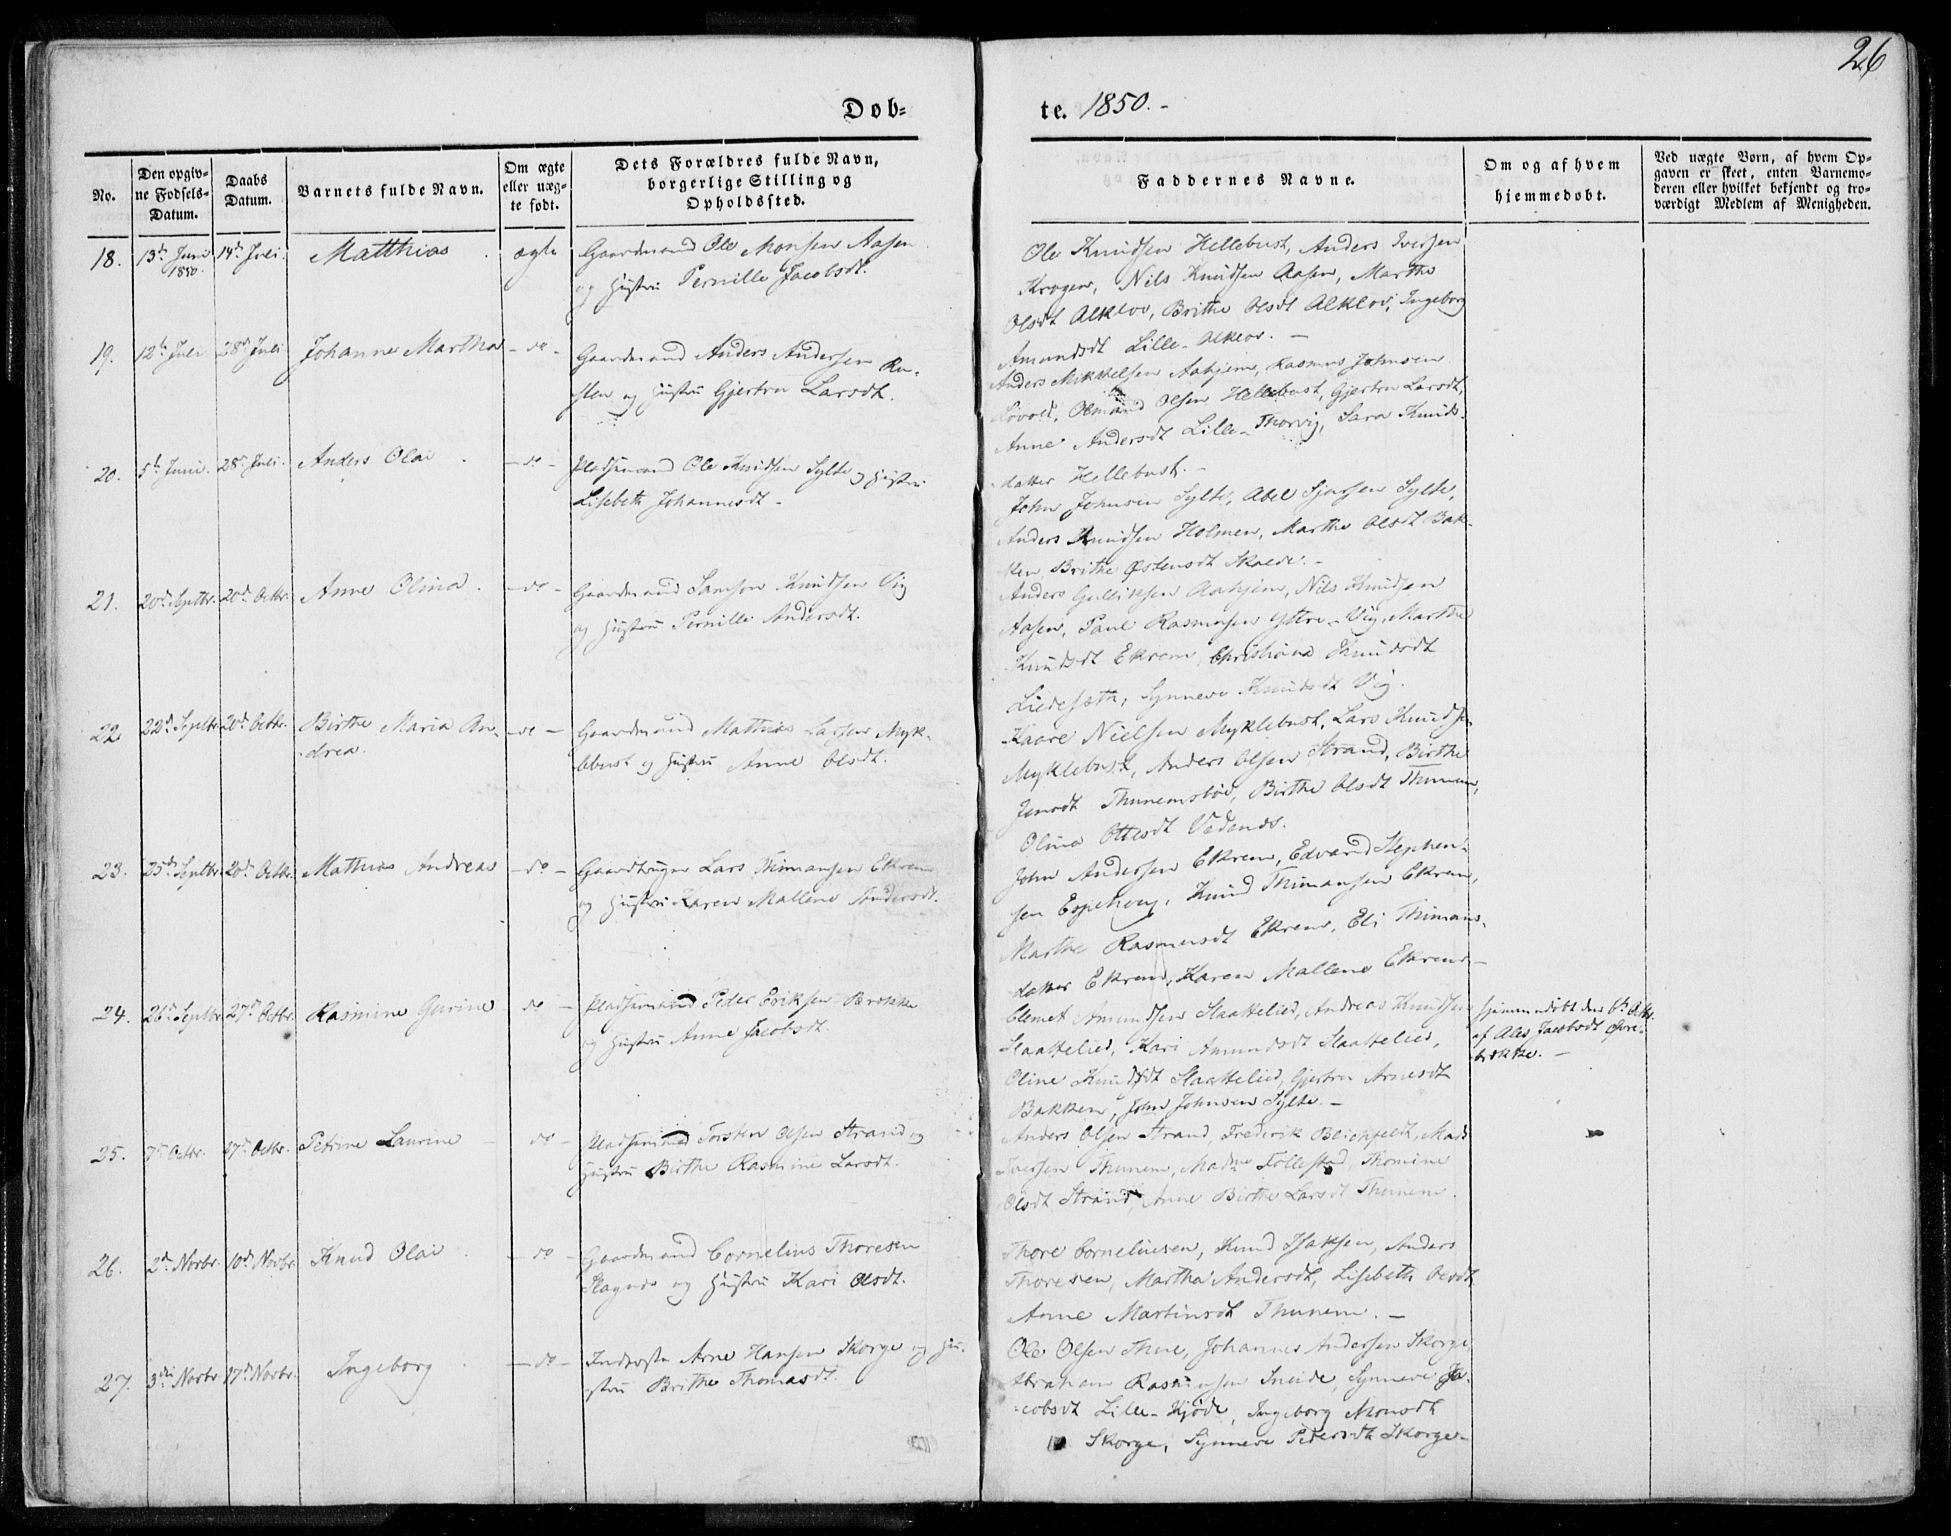 26
Døb=
te. 1850.-
No.
Den opgiv-
ne Fødsels-
Datum.
Daabs
Datum.
Barnets fulde Navn.
Om ægte
eller uæg-
te født.
Dets Forældres fulde Navn,
borgerlige Stilling og
Opholdssted.
Faddernes Navne.
Om og af hvem
hjemmedøbt.
Ved uægte Børn, af hvem Op-
gaven er skeet, enten Barnemo-
deren eller hvilket bekjendt og tro-
værdigt Medlem af Menigheden.
18.
13de Juni
1850.
14de Juli.
Matthias
ægte
Gaardmand Ole Monsen Aasen
og Hustru Pernille Jacobsdt.
Ole Knudsen Hellebust, Anders Iversen
Krogen, Nils Knudsen Aasen, Marthe
Olsdt Alklov, Brithe Olsdt Alklov, Ingeborg
Amundsdt Lille-Alklov. -
19.
12te Juli
28de Juli
Johanne Martha
- do -
Gaardmand Anders Andersen Ru-
sten og Hustru Gjertru Larsdt.
Anders Mikkelsen Aahjem, Rasmus Johnsen
Løvold, Olmand Olsen Hellebust, Gjertru Larsdt,
Anne Andersdt Lille-Thorvig, Sara Knuds-
datter Hellebust. -
20.
5te Juni.
28de Juli.
Anders Olai
- do -
Pladsemand Ole Knudsen Sylte og Hustru
Lisebeth Johannesdt -
John Johnsen Sylte, Abel Sjursen Sylte,
Anders Knudsen Holmen, Marthe Olsdt Bak-
ken Brithe Østensdt Skaede. -
21.
20de Septbr.
20de Octbr.
Anne Olina.
- do -
Gaardmand Samson Knudsen Vig
og Hustru Pernille Andersdt.
Anders Gulliksen Aahjem, Nils Knudsen
Aasen, Paul Rasmusen Yttre-Vig, Marthe
Knudsdt Ekrem, Christiane Knudsdt
Liedesæth, Synneve Knudsdt Vig.
22
22de Septbr
20de Octbr.
Birthe Maria An-
drea.
- do -
Gaardmand Mathias Larsen Myk-
lebust og Hustru Anne Olsdt.
Kaare Nielsen Myklebust, Lars Knudsen
Myklebust, Anders Olsen Strand, Birthe
Jensdt Thunemsbøe, Birthe Olsdt Thunem,
Olina Ottesdt Vedenes.
23.
25de Septbr.
20de Octbr.
Mathias Andreas
- do -
Gaardbruger Lars Thimansen Ekrem
og Hustru Karen Mallene Andersdt.
John Andersen Ekrem, Edvard Stephen-
sen Espehoug, Knud Thimansen Ekrem,
Marthe Rasmusdt Ekrem, Eli Thimans-
datter Ekrem, Karen Mallene Ekrem -
24.
26de Septbr
27de Octbr.
Rasmine Gurine
do -
Pladsemand Peder Eriksen Brekke
og Hustru Anne Jacobsdt.
Clemet Amundsen Slaattelied, Andreas Knudsen
Slaattelied, Kari Amundsdt Slaattelied,
Oline Knudsdt Slaattelied, Gjertru Arnesdt
Bakken, John Johnsen Sylte. -
Hjemmedøbt den 6te Octbr.
af Jacobsdt Øvre-
brekke. -
25.
7de Octbr.
27de Octbr.
Petrine Laurine
do -
Pladsemand Torsten Olsen Strand og
Hustru Birthe Rasmine Larsdt.
Anders Olsen Strand, Frederik Blichfeldt, Mads
Iversen Thunem, Madme Follestad, Thomine
Olsdt Strand, Anne Birthe Larsdt Thunem.
26.
2de Novbr.
10de Novbr
Knud Olai
- do -
Gaardmand Cornelius Thoresen
Slagnes og Hustru Kari Olsdt.
Thore Corneliusen, Knud Isaksen, Anders
Thoresen, Martha Andersdt, Lisebeth Olsdt
Anne Martinsdt Thunem. -
27.
3die Novbr
17de Novbr.
Ingeborg
- do -
Inderste Arne Hansen Skorge og Hu-
stru Brithe Thomasdt.
Ole Olsen Thue, Johannes Andersen Skorge
Abraham Rasmusen Sneide, Synneve Ja-
cobsdt Lille-Kjøde, Ingeborg Monsdt
Skorge, Synneve Pedersdt Skorge-